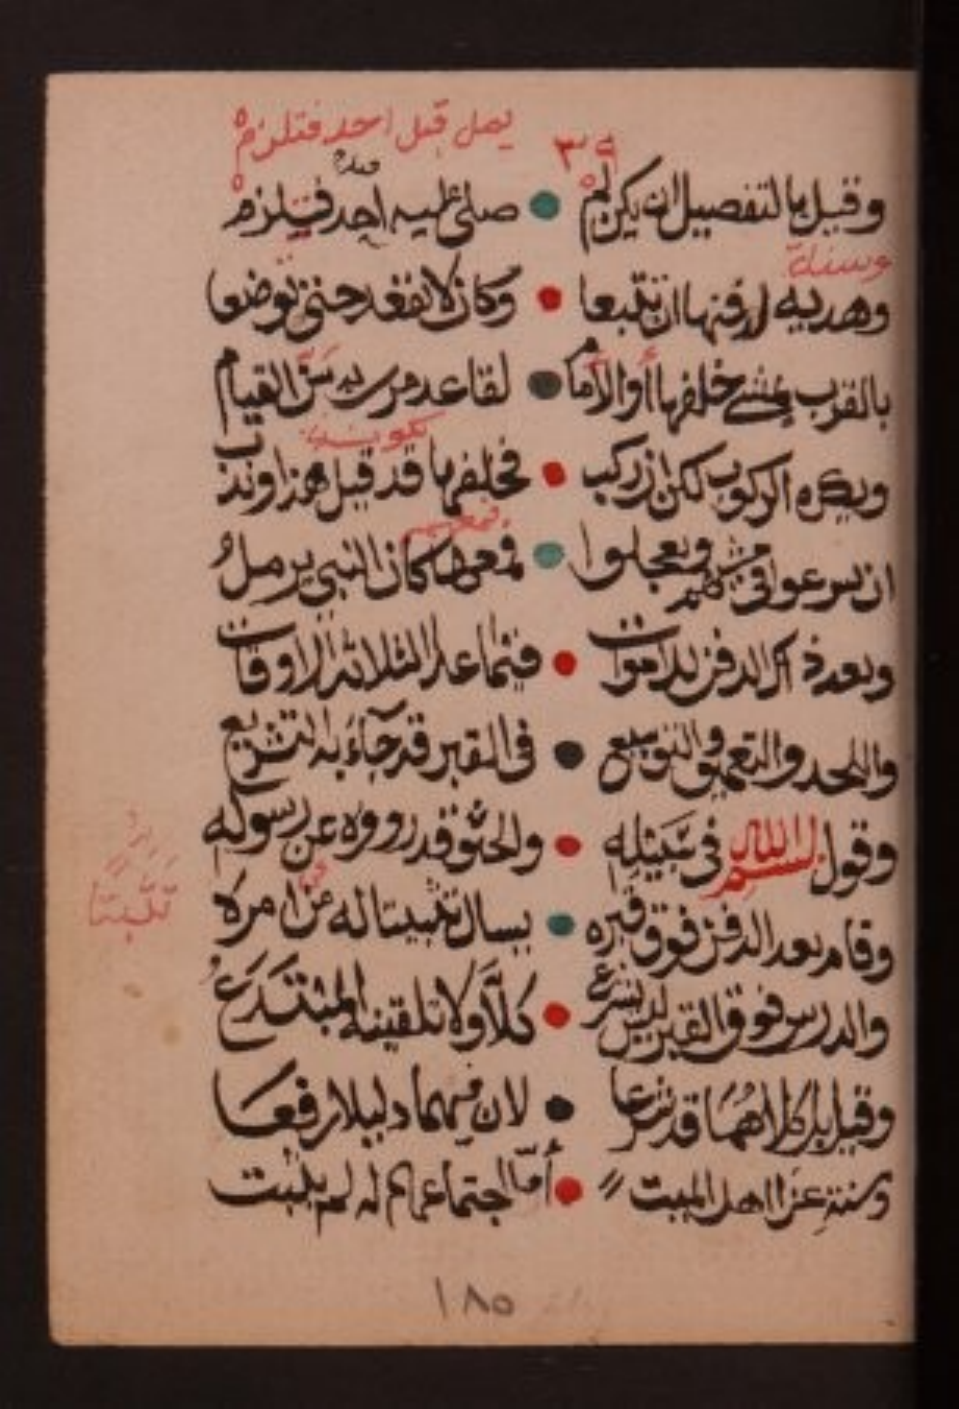 يصل قبل احد فتلزم
٣٩
وقيل بالتفصيل ان يكن لم صلى عليه احد فيلزم
وسنة
وهديه لدفنها ان تتبعا وكان لا يقعد حتى توضعا
بالقرب يمشي خلفها أو الأمام لقاعد مرت به سن القيام
ويكره الركوب لكن ان ركب فخلفها قد قيل هذا وندب
ان يسرعوا في مشيهم ويعجلوا فمعها كان النبي يرمل
وبعد ذاك الدفن للاموات فيما عدا الثلاثة الاوقات
واللحد والتعميق والتوسيع في القبر قد جاء به التشريع
وقول بسم الله في سبيله والحثو قد رووه عن رسوله
وقام بعد الدفن فوق قبره يسال تثبيتا له من امره
والدرس فوق القبر ليس يشرع كلا ولا تلقينه المبتدع
وقيل بل كلاهما قد شرعا لان فيهما دليلا رفعا
وسنة عزا اهل الميت أما اجتماعهم له لم يثبت
١٨٥